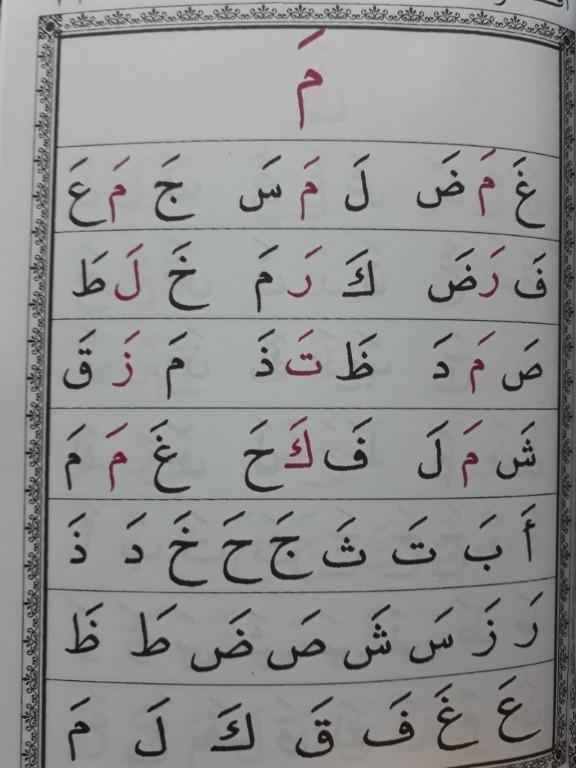 مَ
غَ مَ ضَ لَ مَ سَ جَ مَ عَ
فَ رَ ضَ كَ رَ مَ خَ لَ طَ
صَ مَ دَ ظَ تَ ذَ مَ زَ قَ
شَ مَ لَ فَ كَ حَ غَ مَ مَ
أَ بَ تَ ثَ جَ حَ خَ دَ ذَ
رَ زَ سَ شَ صَ ضَ طَ ظَ
عَ غَ فَ قَ كَ لَ مَ